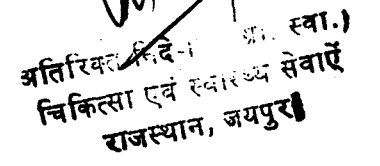 अतिरिक्त निदे- (प्रा. स्वा.)
चिकित्सा एवं स्वास्थ्य सेवाऐं
राजस्थान, जयपुर